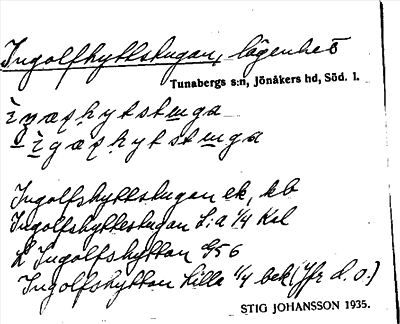 Ingolfhyttskugan, lägenhet
Tunabergs s:n, Jönåkers hd, Söd. l.
Ingolfshyttskugan ek, kb
Ingolfshytteskugan S:a 1/4 Kal
L Ingolfshyttan G56
Ingolfshyttan Lilla 1/4 bek (Jfr d. o.)
STIG JOHANSSON 1935.